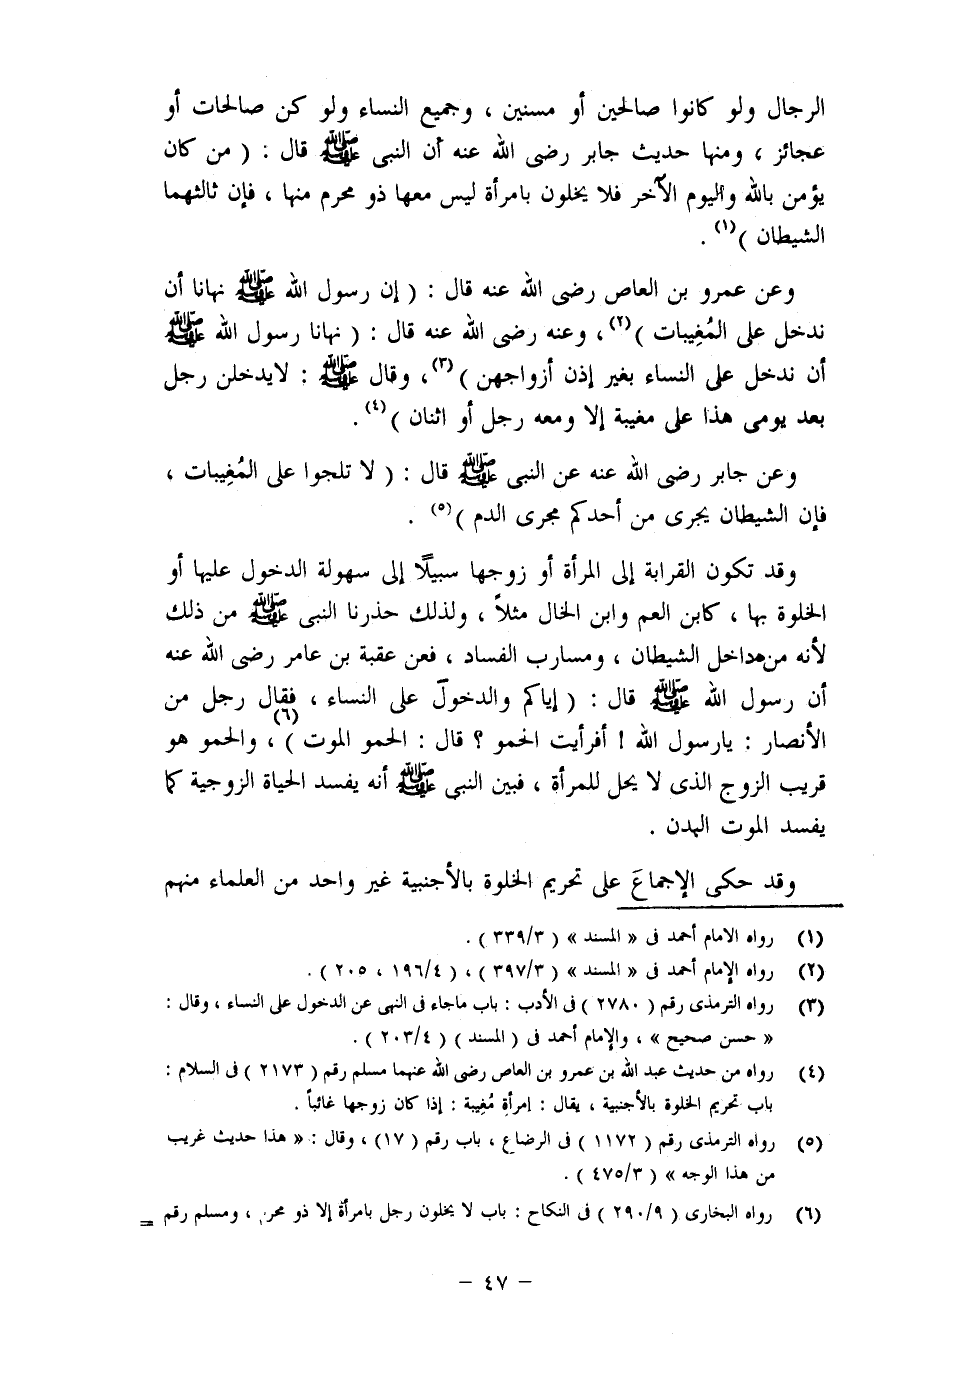 الرجال ولو كانوا صالحين أو مسنين ، وجميع النساء ولو كن صالحات أو
عجائز ، ومنها حديث جابر رضى الله عنه أن النبى ﷺ قال : ( من كان
يؤمن بالله واليوم الآخر فلا يخلون بامرأة ليس معها ذو محرم منها ، فإن ثالثهما
الشيطان )(١) .
وعن عمرو بن العاص رضى الله عنه قال : ( إن رسول الله ﷺ نهانا أن
ندخل على المُغِيبات )(٢)، وعنه رضى الله عنه قال : ( نهانا رسول الله ﷺ
أن ندخل على النساء بغير إذن أزواجهن )(٣)، وقال ﷺ : لايدخلن رجل
بعد يومى هذا على مغيبة إلا ومعه رجل أو اثنان )(٤) .
وعن جابر رضى الله عنه عن النبى ﷺ قال : ( لا تلجوا على المُغِيبات ،
فإن الشيطان يجرى من أحدكم مجرى الدم )(٥) .
وقد تكون القرابة إلى المرأة أو زوجها سبيلًا إلى سهولة الدخول عليها أو
الخلوة بها ، كابن العم وابن الخال مثلاً ، ولذلك حذرنا النبى ﷺ من ذلك
لأنه من مداخل الشيطان ، ومسارب الفساد ، فعن عقبة بن عامر رضى الله عنه
أن رسول الله ﷺ قال : ( إياكم والدخول على النساء ، فقال رجل من
الأنصار : يارسول الله ! أفرأيت الحمو ؟ قال : الحمو الموت )(٦) ، والحمو هو
قريب الزوج الذى لا يحل للمرأة ، فبين النبى ﷺ أنه يفسد الحياة الزوجية كما
يفسد الموت البدن .
وقد حكى الإجماعَ على تحريم الخلوة بالأجنبية غير واحد من العلماء منهم
(١) رواه الامام أحمد فى « المسند » ( ٣٣٩/٣ ) .
(٢) رواه الإمام أحمد فى « المسند » ( ٣٩٧/٣ ) ، ( ١٩٦/٤ ، ٢٠٥ ) .
(٣) رواه الترمذى رقم ( ٢٧٨٠ ) فى الأدب : باب ماجاء فى النهى عن الدخول على النساء ، وقال :
« حسن صحيح » ، والإمام أحمد فى ( المسند ) ( ٢٠٣/٤ ) .
(٤) رواه من حديث عبد الله بن عمرو بن العاص رضى الله عنهما مسلم رقم ( ٢١٧٣ ) فى السلام :
باب تحريم الخلوة بالأجنبية ، يقال : امرأة مُغِيبة : إذا كان زوجها غائباً .
(٥) رواه الترمذى رقم ( ١١٧٢ ) فى الرضاع ، باب رقم (١٧) ، وقال : « هذا حديث غريب
من هذا الوجه » ( ٤٧٥/٣ ) .
(٦) رواه البخارى ( ٢٩٠/٩ ) فى النكاح : باب لا يخلون رجل بامرأة إلا ذو محرم ، ومسلم رقم =
– ٤٧ –